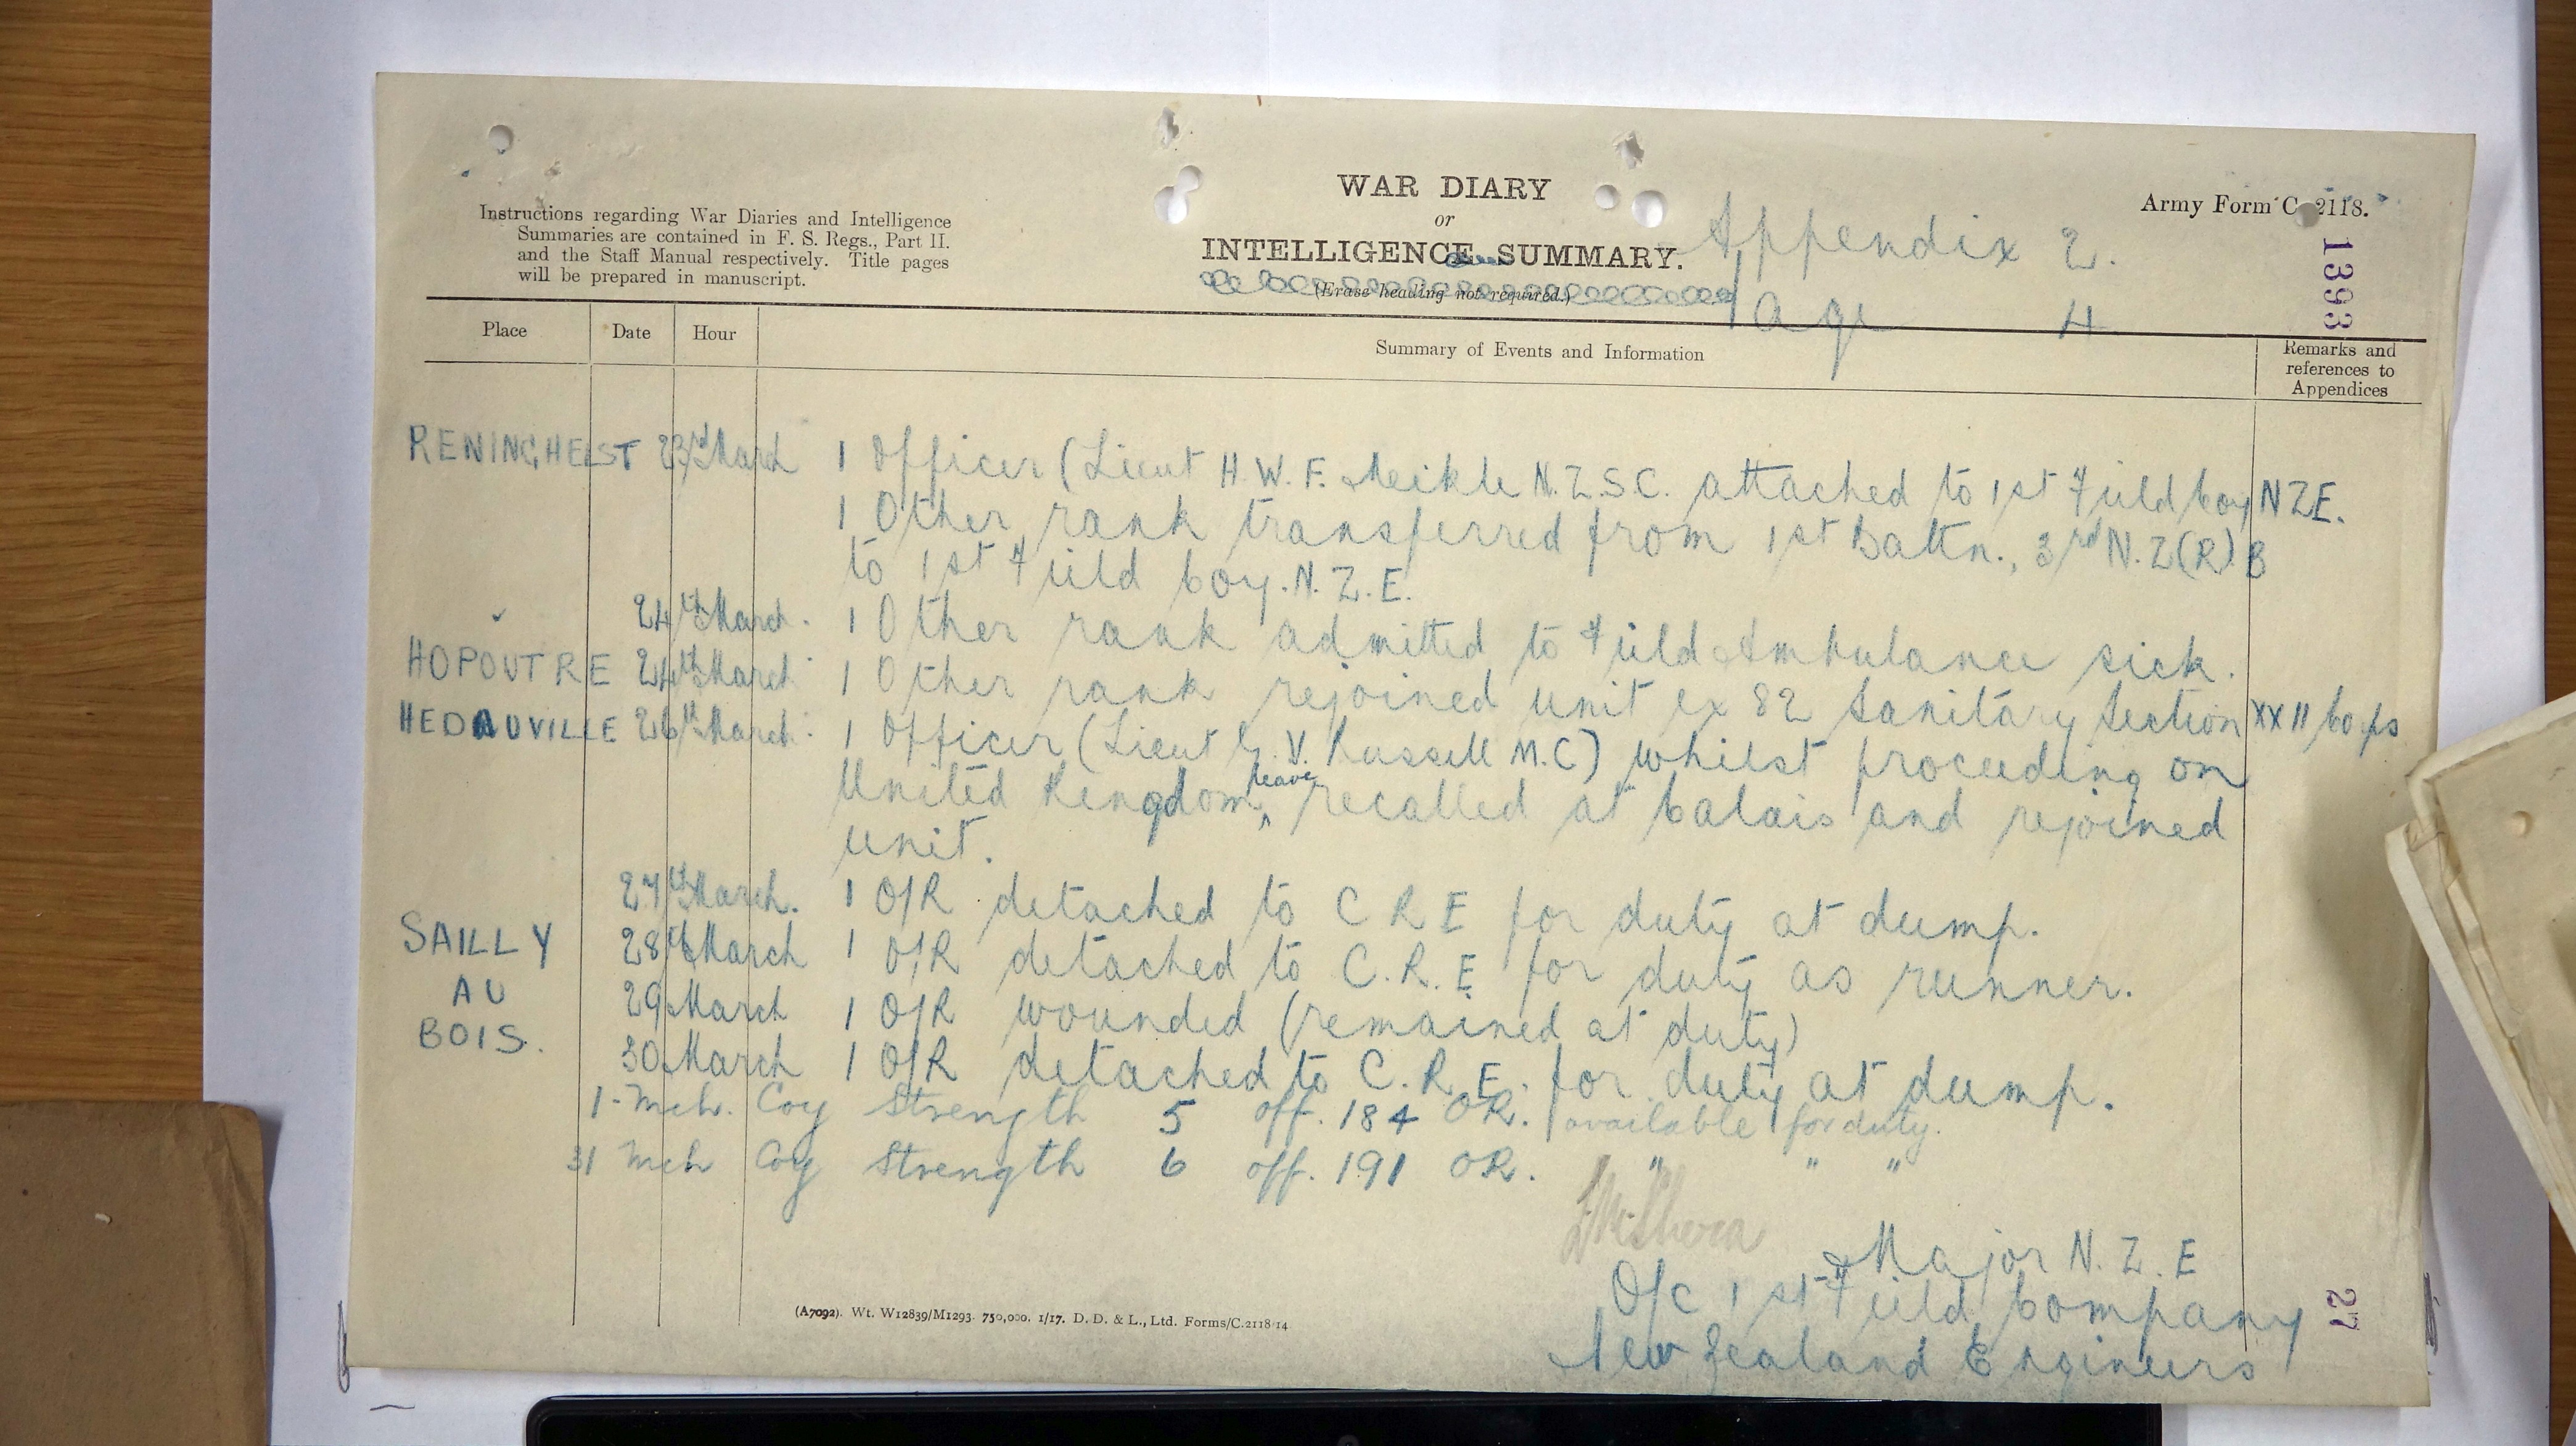 WAR DIARY
or
INTELLIGENCE SUMMARY.
(Erase heading not required.)
Instructions regarding War Diaries and Intelligence
Summaries are contained in F. S. Regs., Part II.
and the Staff Manual respectively. Title pages
will be prepared in manuscript.
Army Form C. 2118.
Appendix 2.
Page 4
1393
Place Date Hour Summary of Events and Information Remarks and
references to
Appendices
RENINGHELST 23rd March 1 Officer (Lieut H.W.F. Meikle N.Z.S.C. attached to 1st Field Coy NZE.
1 Other rank transferred from 1st Battn., 3rd N.Z(R).B
to 1st Field Coy. N.Z.E.
24th March. 1 Other rank admitted to Field Ambulance sick.
HOPOUTRE 24th March 1 Other rank rejoined unit ex 82 Sanitary Section XXII Corps
HEDAUVILLE 26th March 1 Officer (Lieut G.V. Russell M.C) whilst proceeding on
United Kingdom leave, recalled at Calais and rejoined
unit.
27th March. 1 O/R detached to C R E for duty at dump.
SAILLY 28th March 1 O/R detached to C.R.E for duty as runner.
AU 29 March 1 O/R wounded (remained at duty)
BOIS. 30 March 1 O/R detached to C.R.E. for duty at dump.
1-Mch. Coy Strength 5 off. 184 OR. available for duty.
31 Mch Coy Strength 6 off. 191 OR. " " "
Major N.Z.E
O/c 1st Field Company
New Zealand Engineers
(A7092). Wt. W12839/M1293. 750,000. 1/17. D. D. & L., Ltd. Forms/C.2118/14
27